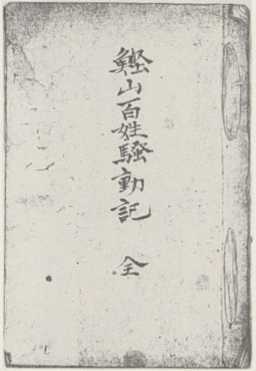 鰹山百姓騒動記 全